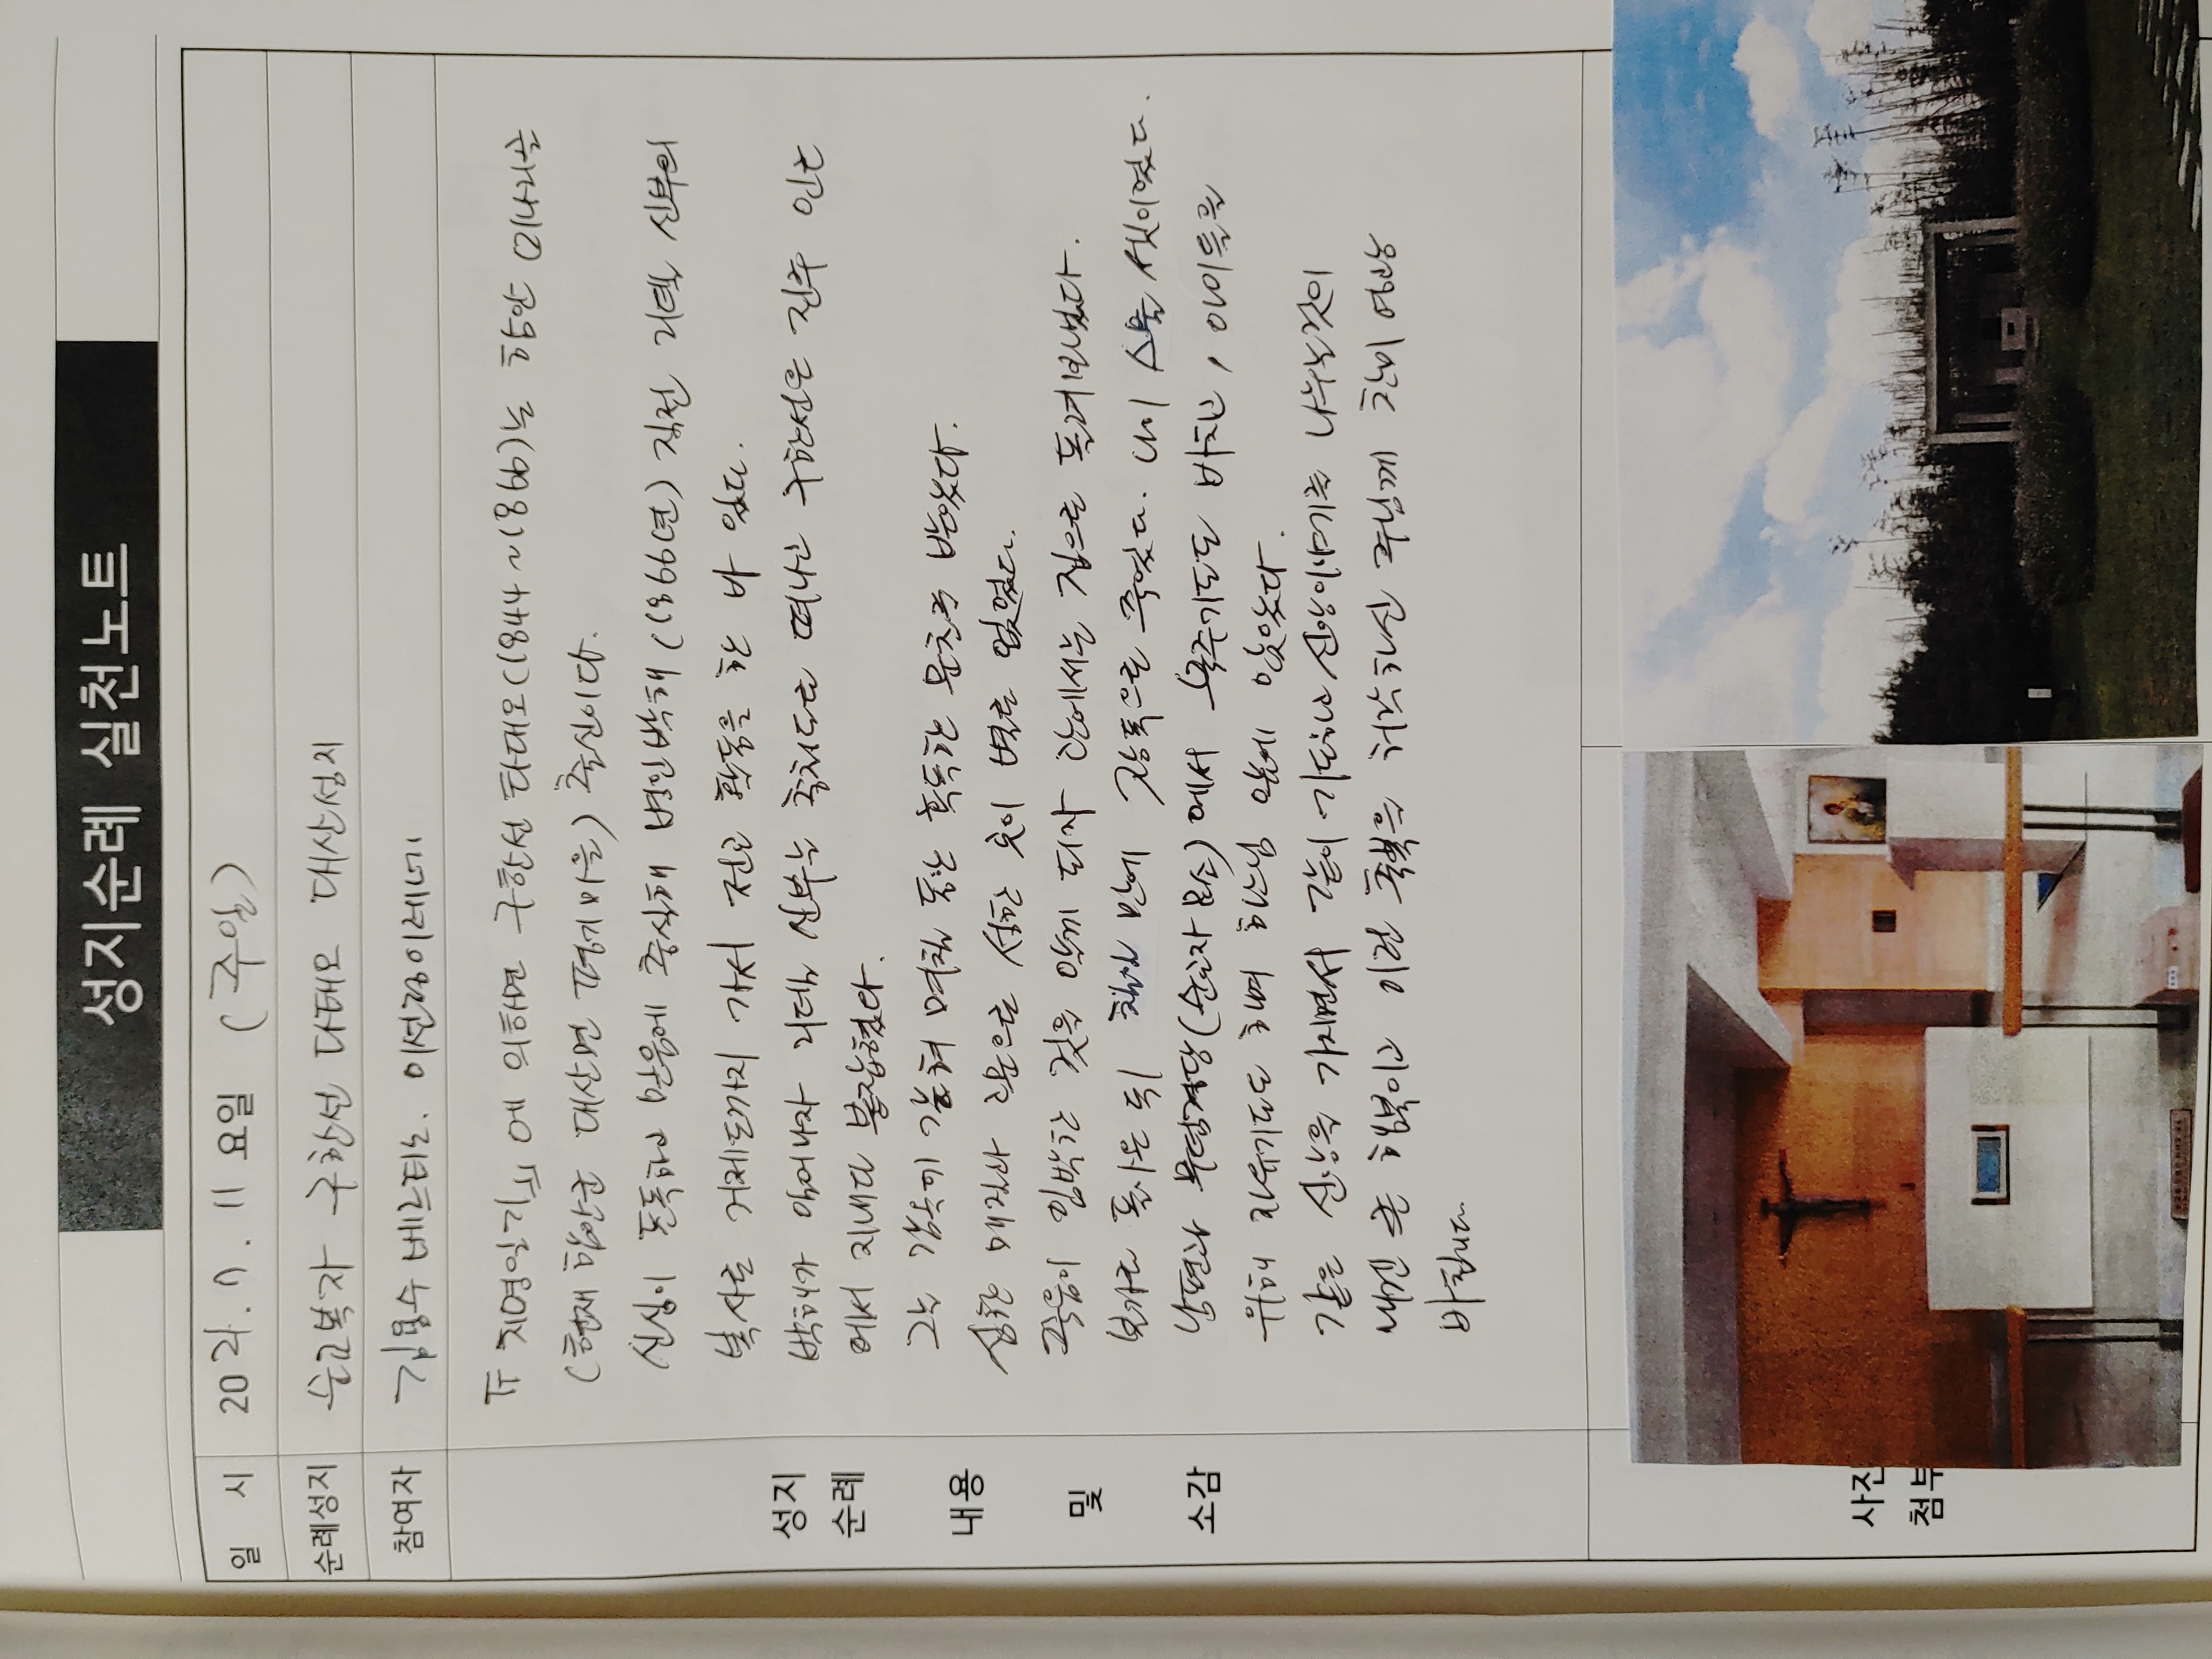 성지순례 실천노트
일 시 2021. 7. 11 요일 (주일)
순례성지 순교복자 구한선 다태오 대산성지
참여자 김용수 베르티노. 이선령이레네
『치명일기』에 의하면 구한선 타대오(1844~1866)는 함안 미나리골
(현재 함안군 대산면 평기마을) 출신이다.
신심이 돈독하고 믿음에 충실해 병인박해(1866년) 직전 리델 신부의
복사로 거제도까지 가서 전교 활동을 한 바 있다.
박해가 일어나자 리델 신부는 충청도로 떠나고 구한선은 진주 인근
에서 지내다 붙잡혔다.
그는 감옥에 갇혀 며칠 동안 혹독한 문초를 받았다.
심한 매질과 고문으로 성한 곳이 별로 없었다.
죽음이 임박한 것을 알게 되자 관에서는 집으로 돌려보냈다.
본가로 돌아온 뒤 칠일 만에 장독으로 죽었다. 나이 스물 셋이었다.
남편과 무덤경당(순교자 묘소)에서 묵주기도도 바치고, 아이들을
위해 자유기도도 하며 하느님 앞에 앉았었다.
같은 신앙을 가지면서 같이 기도하고 신앙이야기를 나누는것이
내겐 큰 행복이고 이런 축복을 허락하신 주님께 찬미 영광
바칩니다.
성지
순례
내용
및
소감
사진
첨부